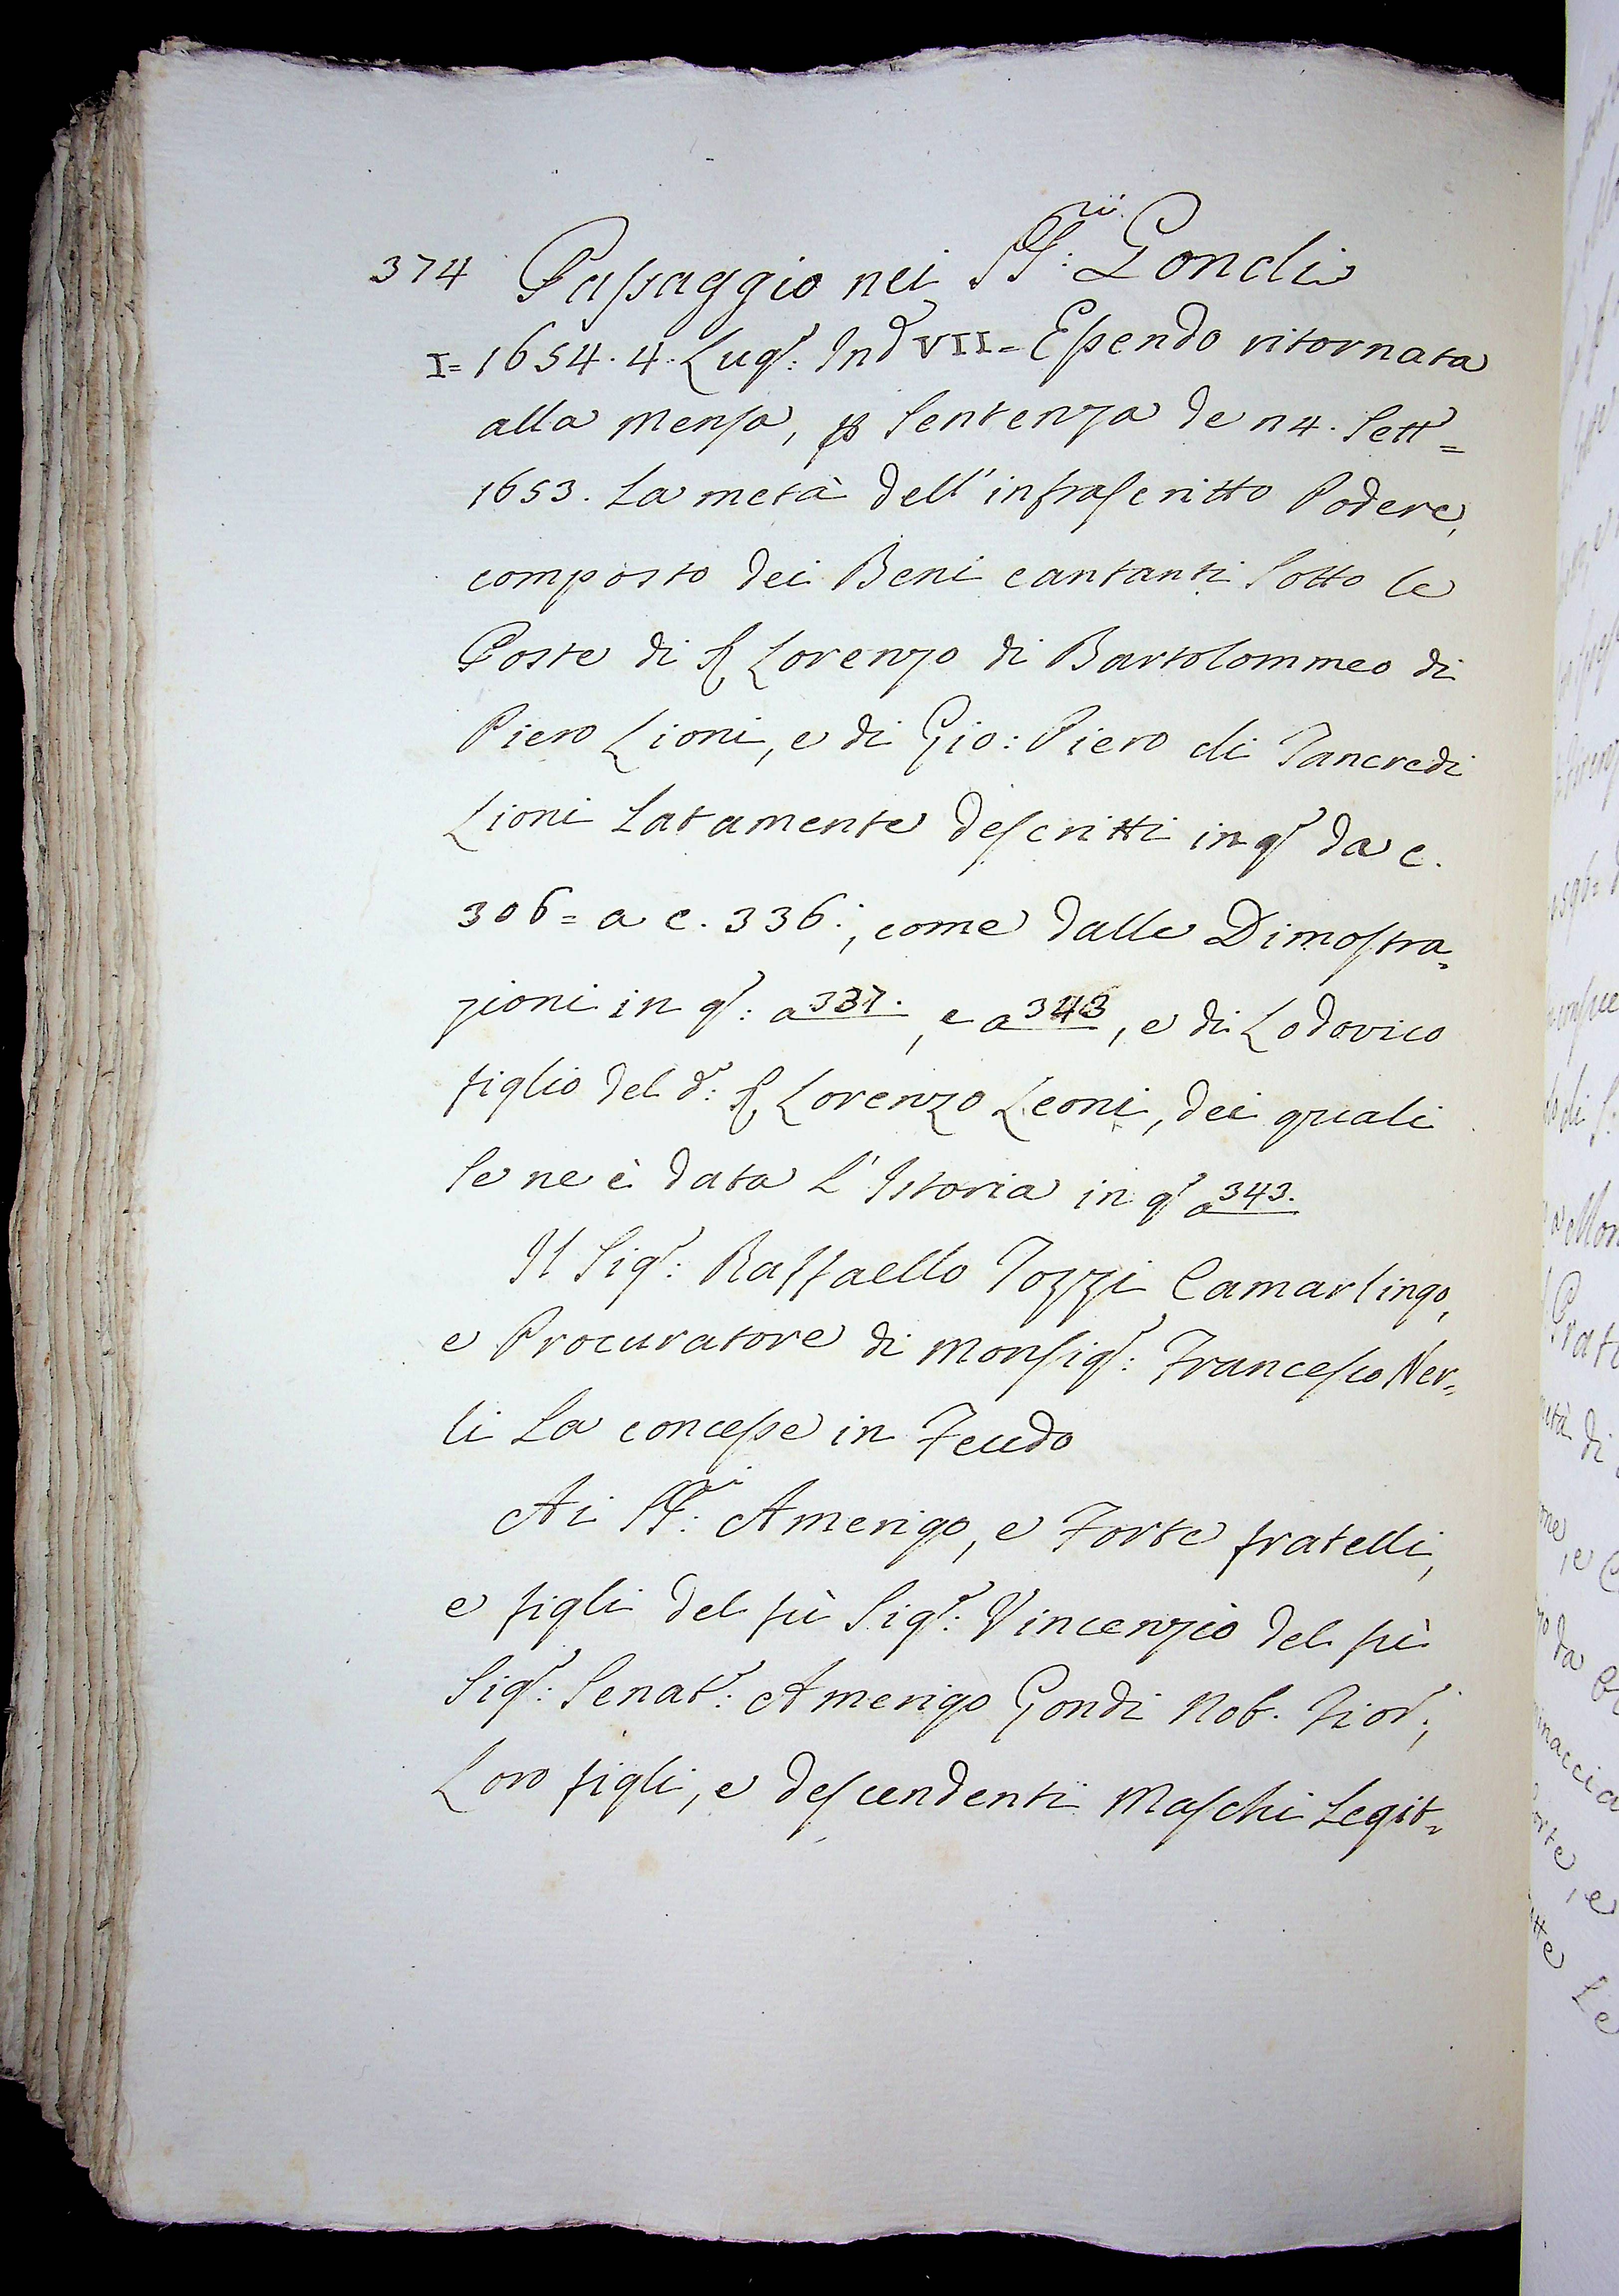 374 Passaggio nei SS:ri Gondi
I= 1654. 4. Lug:o Ind VII= Essendo ritornata
alla Mensa, p Sentenza de 24. Sett=
1653. La metà dell'infrascritto Podere,
composto dei Beni cantanti sotto le
Poste di Lorenzo di Bartolommeo di
Piero Lioni, e di Gio: Piero di Tancredi
Lioni Latamente descritti in q:o da c.
306= a c. 336:, come dalle Dimostra=
zioni in q:o a 337. , e a 343, e di Lodovico
figlio del d:o Lorenzo Leoni, dei quali
se ne è data L'Istoria in q:o a 343.
Il Sig:r Raffaello Tozzi Camarlingo,
e Procuratore di Monsig:r Francesco Ner=
li La concesse in Feudo
Ai SS:ri Amerigo, e Forte fratelli,
e figli del fù Sig:r Vincenzio del fù
Sig:r Senat:r Amerigo Gondi Nob. Fior:,
Loro figli, e descendenti Maschi Legit=